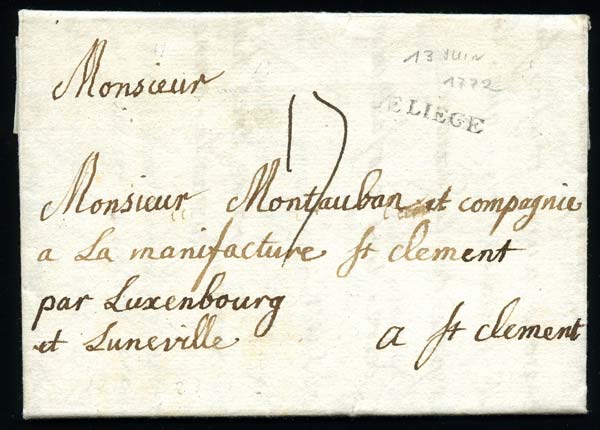 13 JUIN
1772
Monsieur
DE LIEGE
17
Monsieur Montauban et compagnie
a La manifacture st clement
par Luxenbourg
et Luneville a st clement